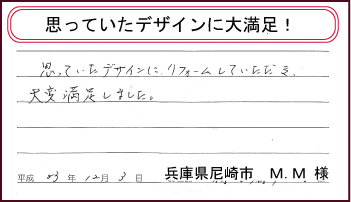 思っていたデザインに大満足！
思っていたデザインに、リフォームしていただき、
大変満足しました。
平成 23 年 12月 3 日 兵庫県尼崎市 M.M 様